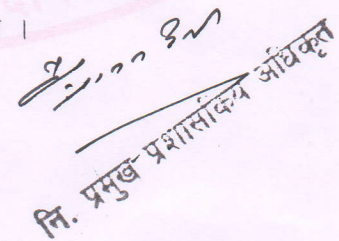 ।
नि. प्रमुख प्रशासकिय अधिकृत